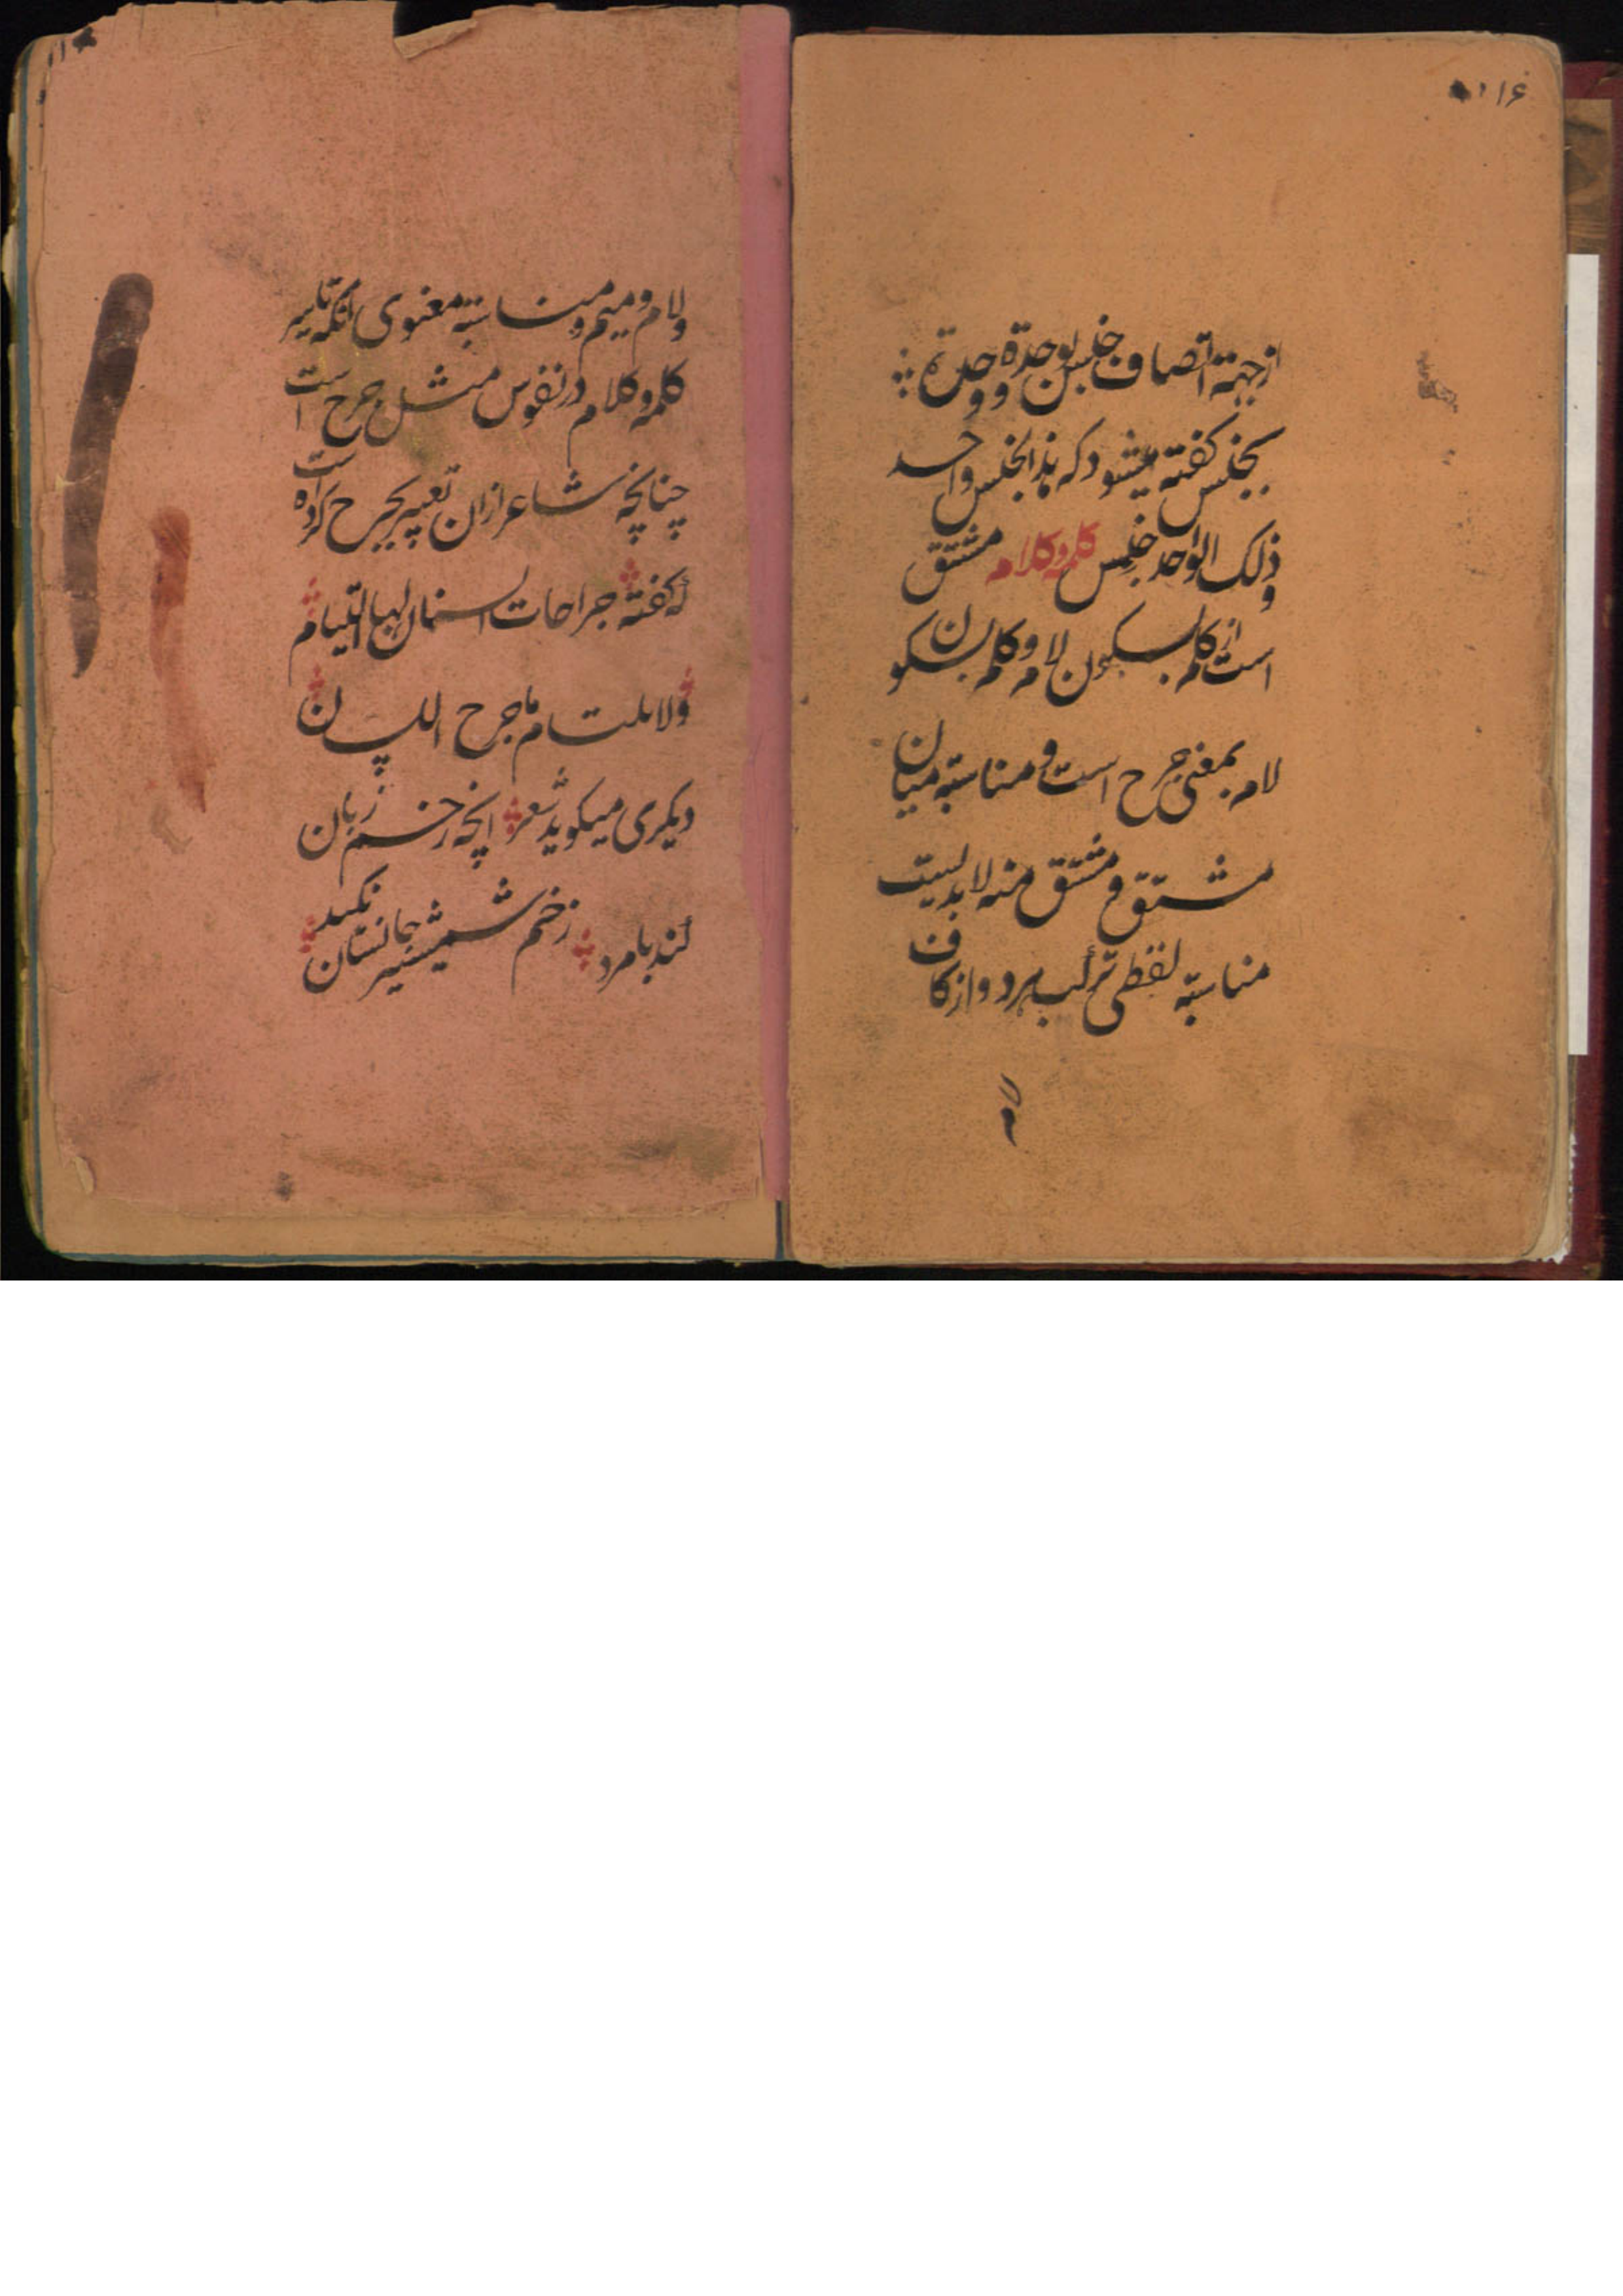 ۱۱۶
ازجهة اتصاف جنس بوحدة و وحدة
بجنس کفته میشود که هذا الجنس واحد
و ذلک الواحد جنس کلمه و کلام مشتق
است از کلم بسکون لام و کلم بسکون
لام بمعنی جرح است و مناسبة میان
مشتق و مشتق منه لابدیست
مناسبة لفظی ترکب هردو از کاف
ولام و میم و مناسبة معنوی انکه تاثیر
کلمه و کلام در نفوس مثل جرح است
چنانچه شاعر ازان تعبیر بجرح کرده است
که کفته جراحات السنان لها التیام
ولا یلتام ماجرح اللسان
دیکری میکوید شعر انچه زخم زبان
کند بامرد زخم شمشیر جانستان نکند